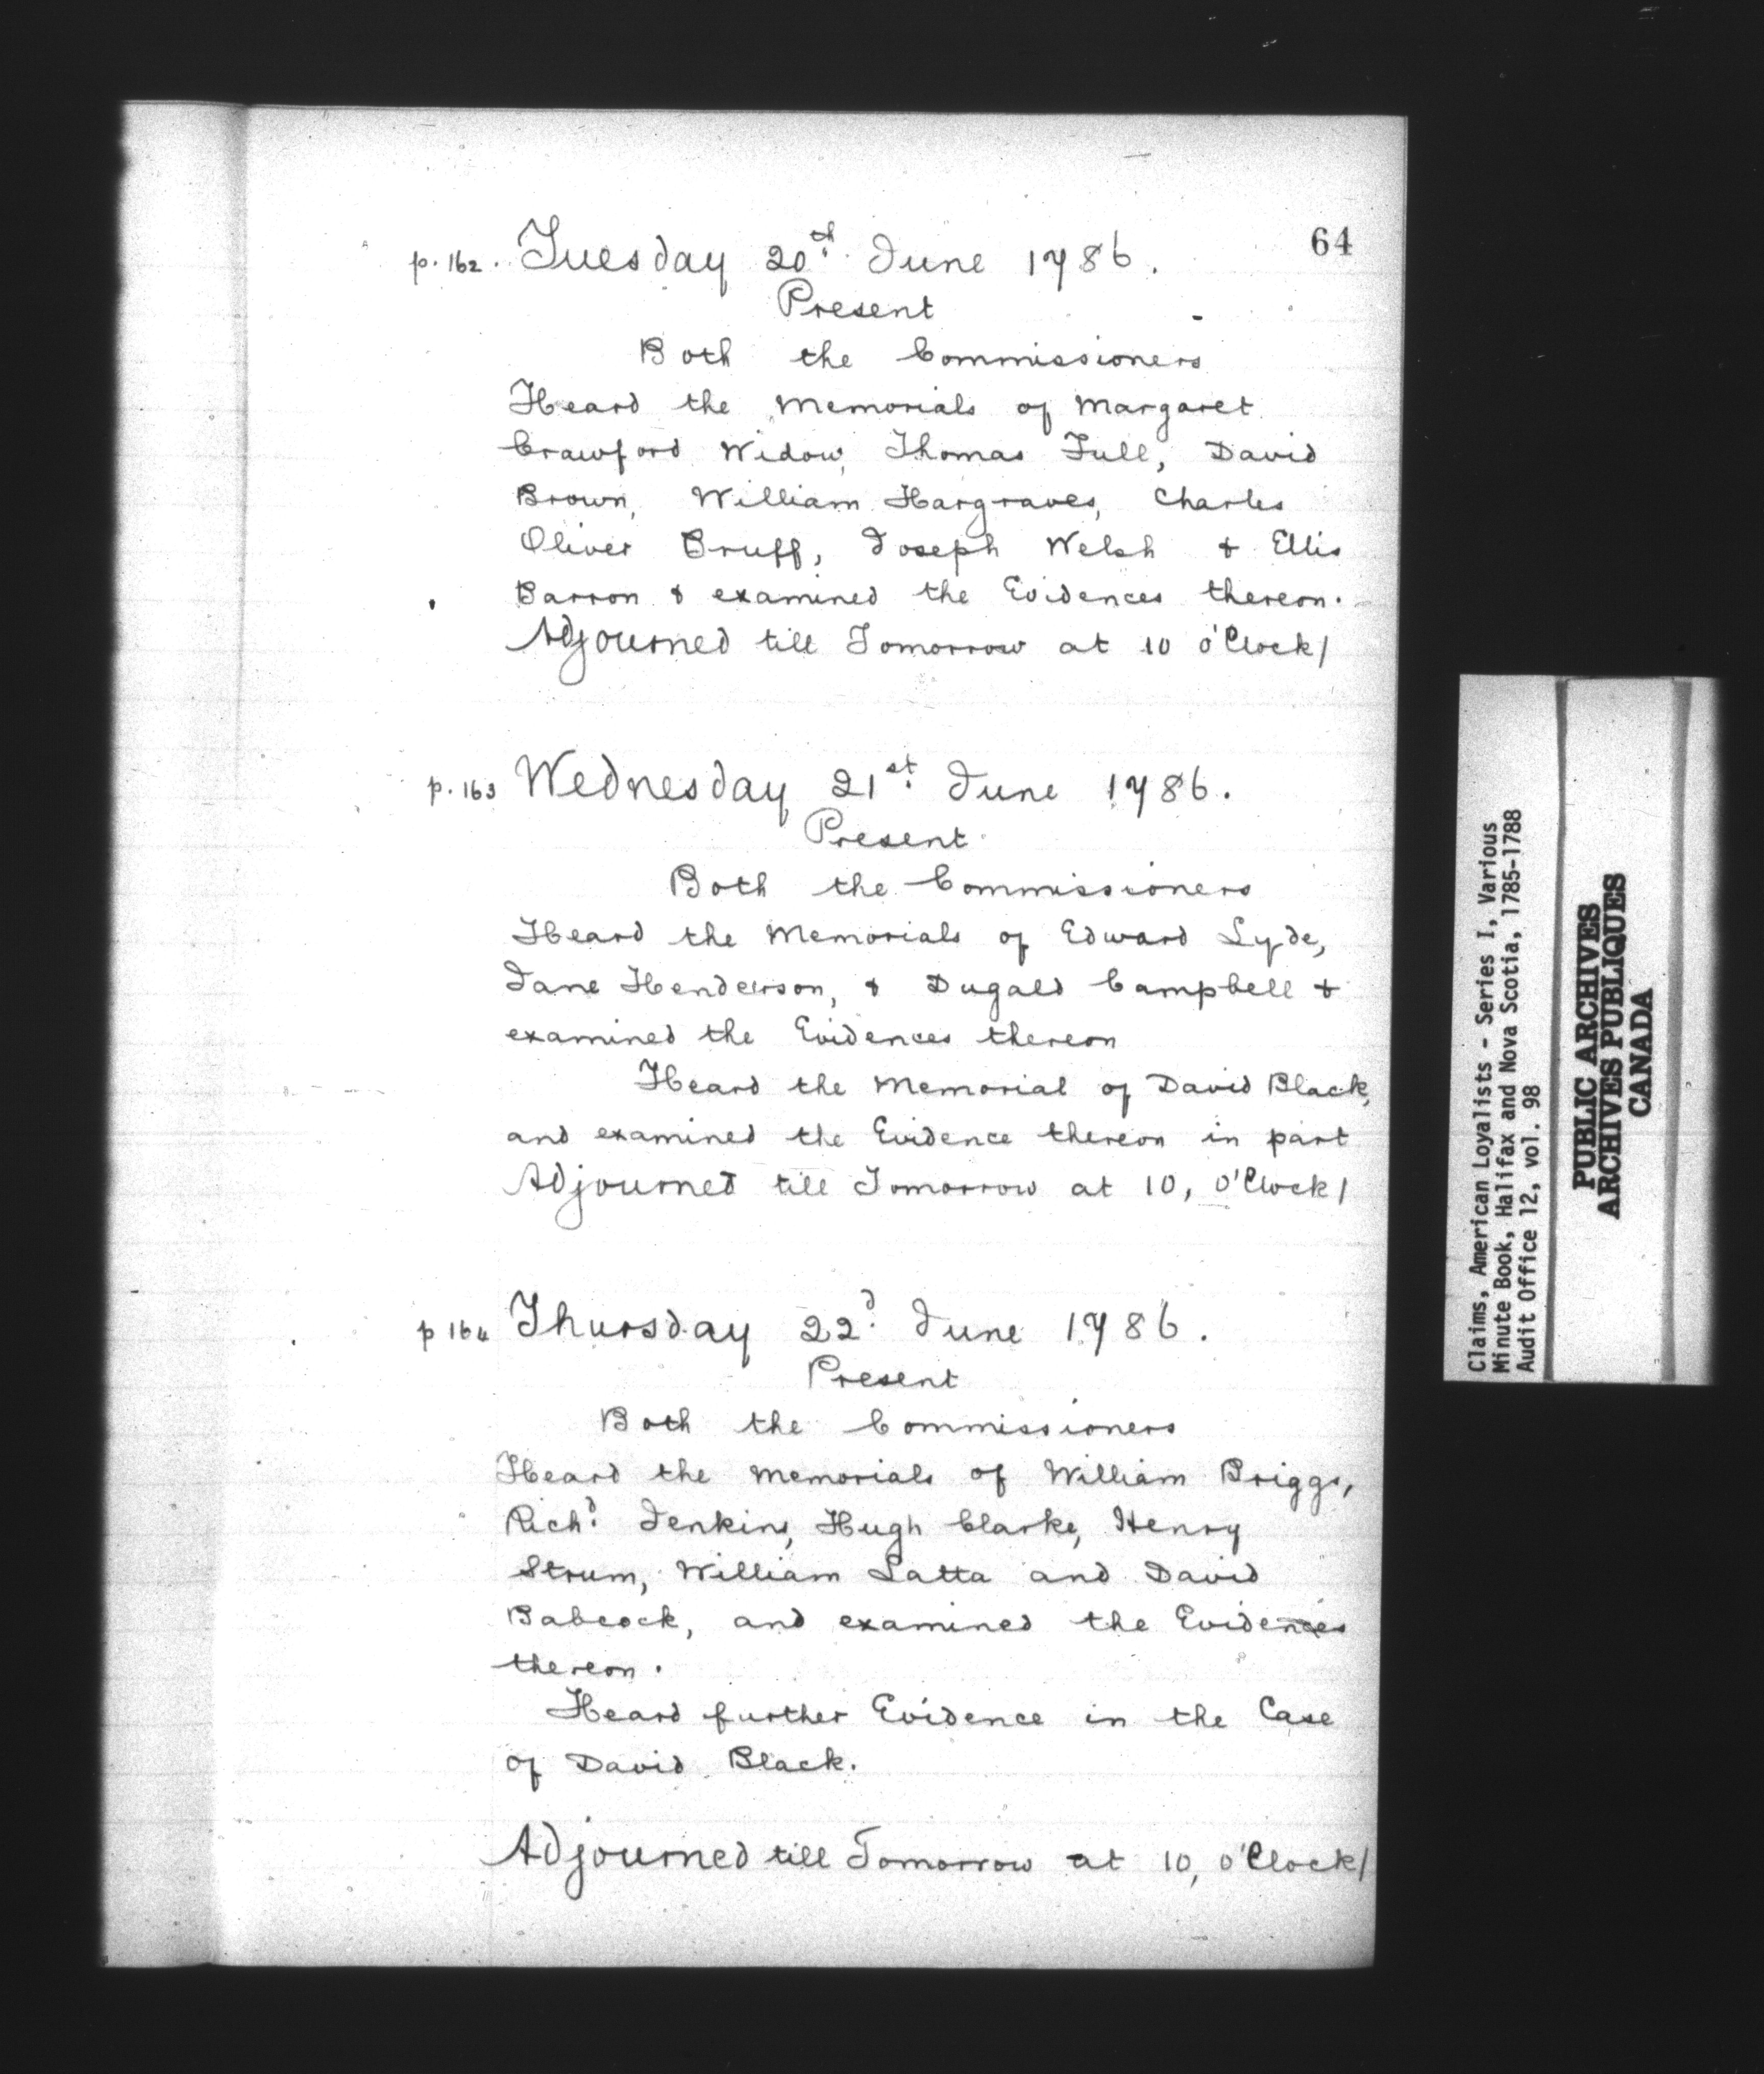 64
p. 162. Tuesday 20th. June 1786.
Present
Both the Commissioners
Heard the Memorials of Margaret
Crawford Widow, Thomas Full, David
Brown, William Hargraves, Charles
Oliver Bruff, Joseph Welsh & Ellis
Barron & examined the Evidences thereon.
Adjourned till Tomorrow at 10 o'Clock/
p. 163 Wednesday 21st. June 1786.
Present
Both the Commissioners
Heard the Memorials of Edward Lyde,
Jane Henderson, & Dugald Campbell &
examined the Evidences thereon
Heard the Memorial of David Black,
and examined the Evidence thereon in part
Adjourned till Tomorrow at 10, o'Clock/
p 164 Thursday 22d. June 1786.
Present
Both the Commissioners
Heard the Memorials of William Briggs,
Richd. Jenkins, Hugh Clarke, Henry
Strum, William Latta and David
Babcock, and examined the Evidences
thereon.
Heard further Evidence in the Case
of David Black.
Adjourned till Tomorrow at 10, o'Clock/
Claims, American Loyalists - Series I, Various
Minute Book, Halifax and Nova Scotia, 1785-1788
Audit Office 12, vol. 98
PUBLIC ARCHIVES
ARCHIVES PUBLIQUES
CANADA